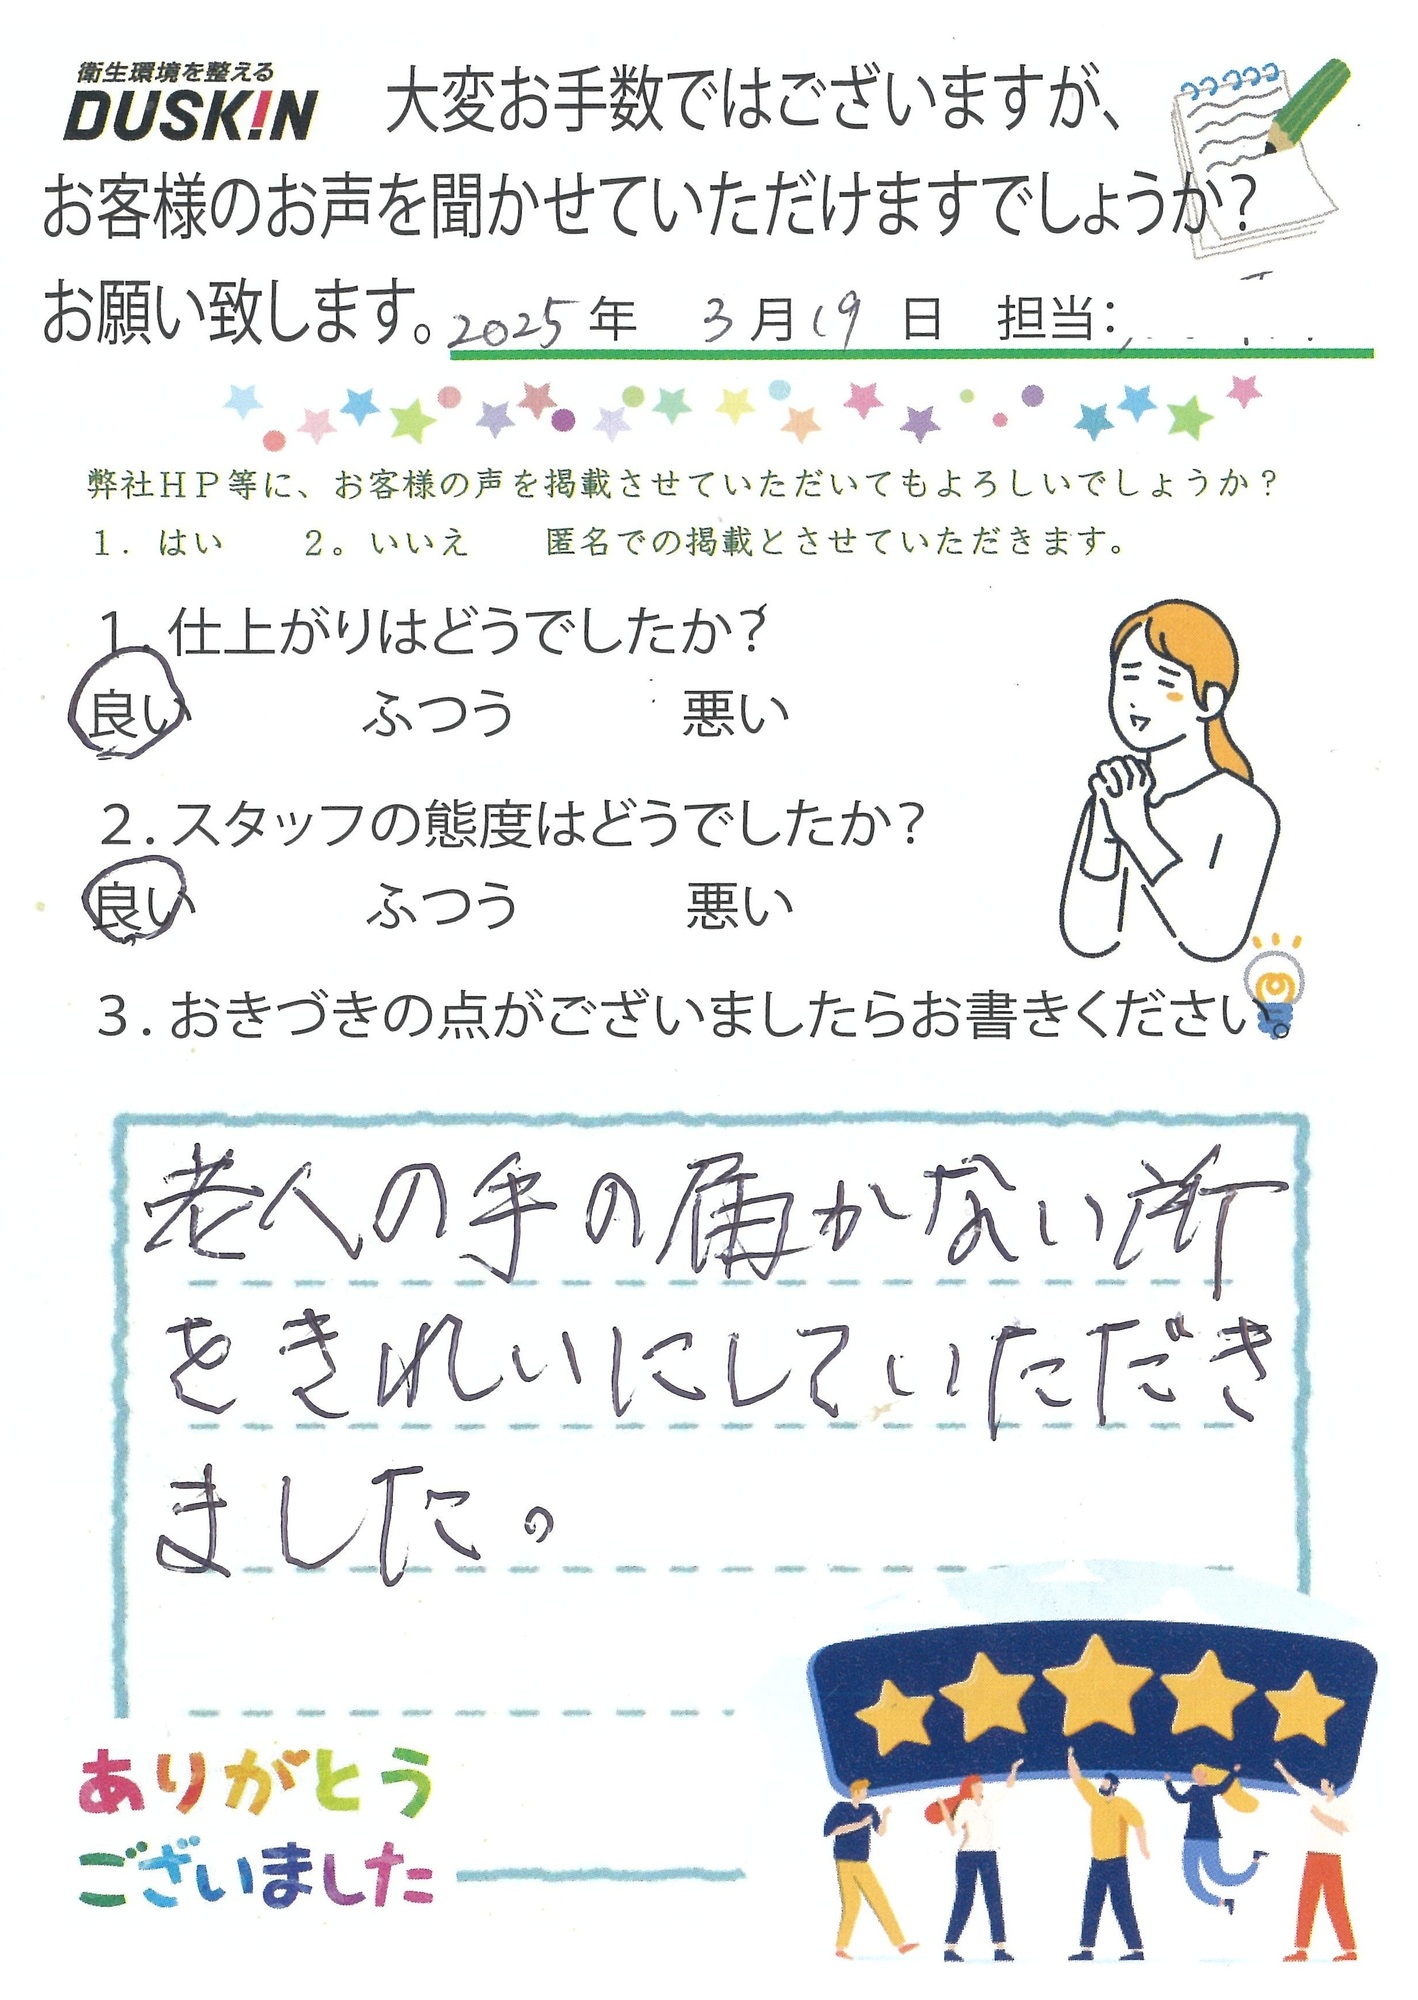 衛生環境を整える
DUSKIN
大変お手数ではございますが、
お客様のお声を聞かせていただけますでしょうか？
お願い致します。 2025年 3月19日 担当：
弊社ＨＰ等に、お客様の声を掲載させていただいてもよろしいでしょうか？
１．はい ２。いいえ 匿名での掲載とさせていただきます。
１．仕上がりはどうでしたか？
良い ふつう 悪い
２．スタッフの態度はどうでしたか？
良い ふつう 悪い
３．おきづきの点がございましたらお書きください。
老人の手の届かない所
をきれいにしていただき
ました。
ありがとう
ございました